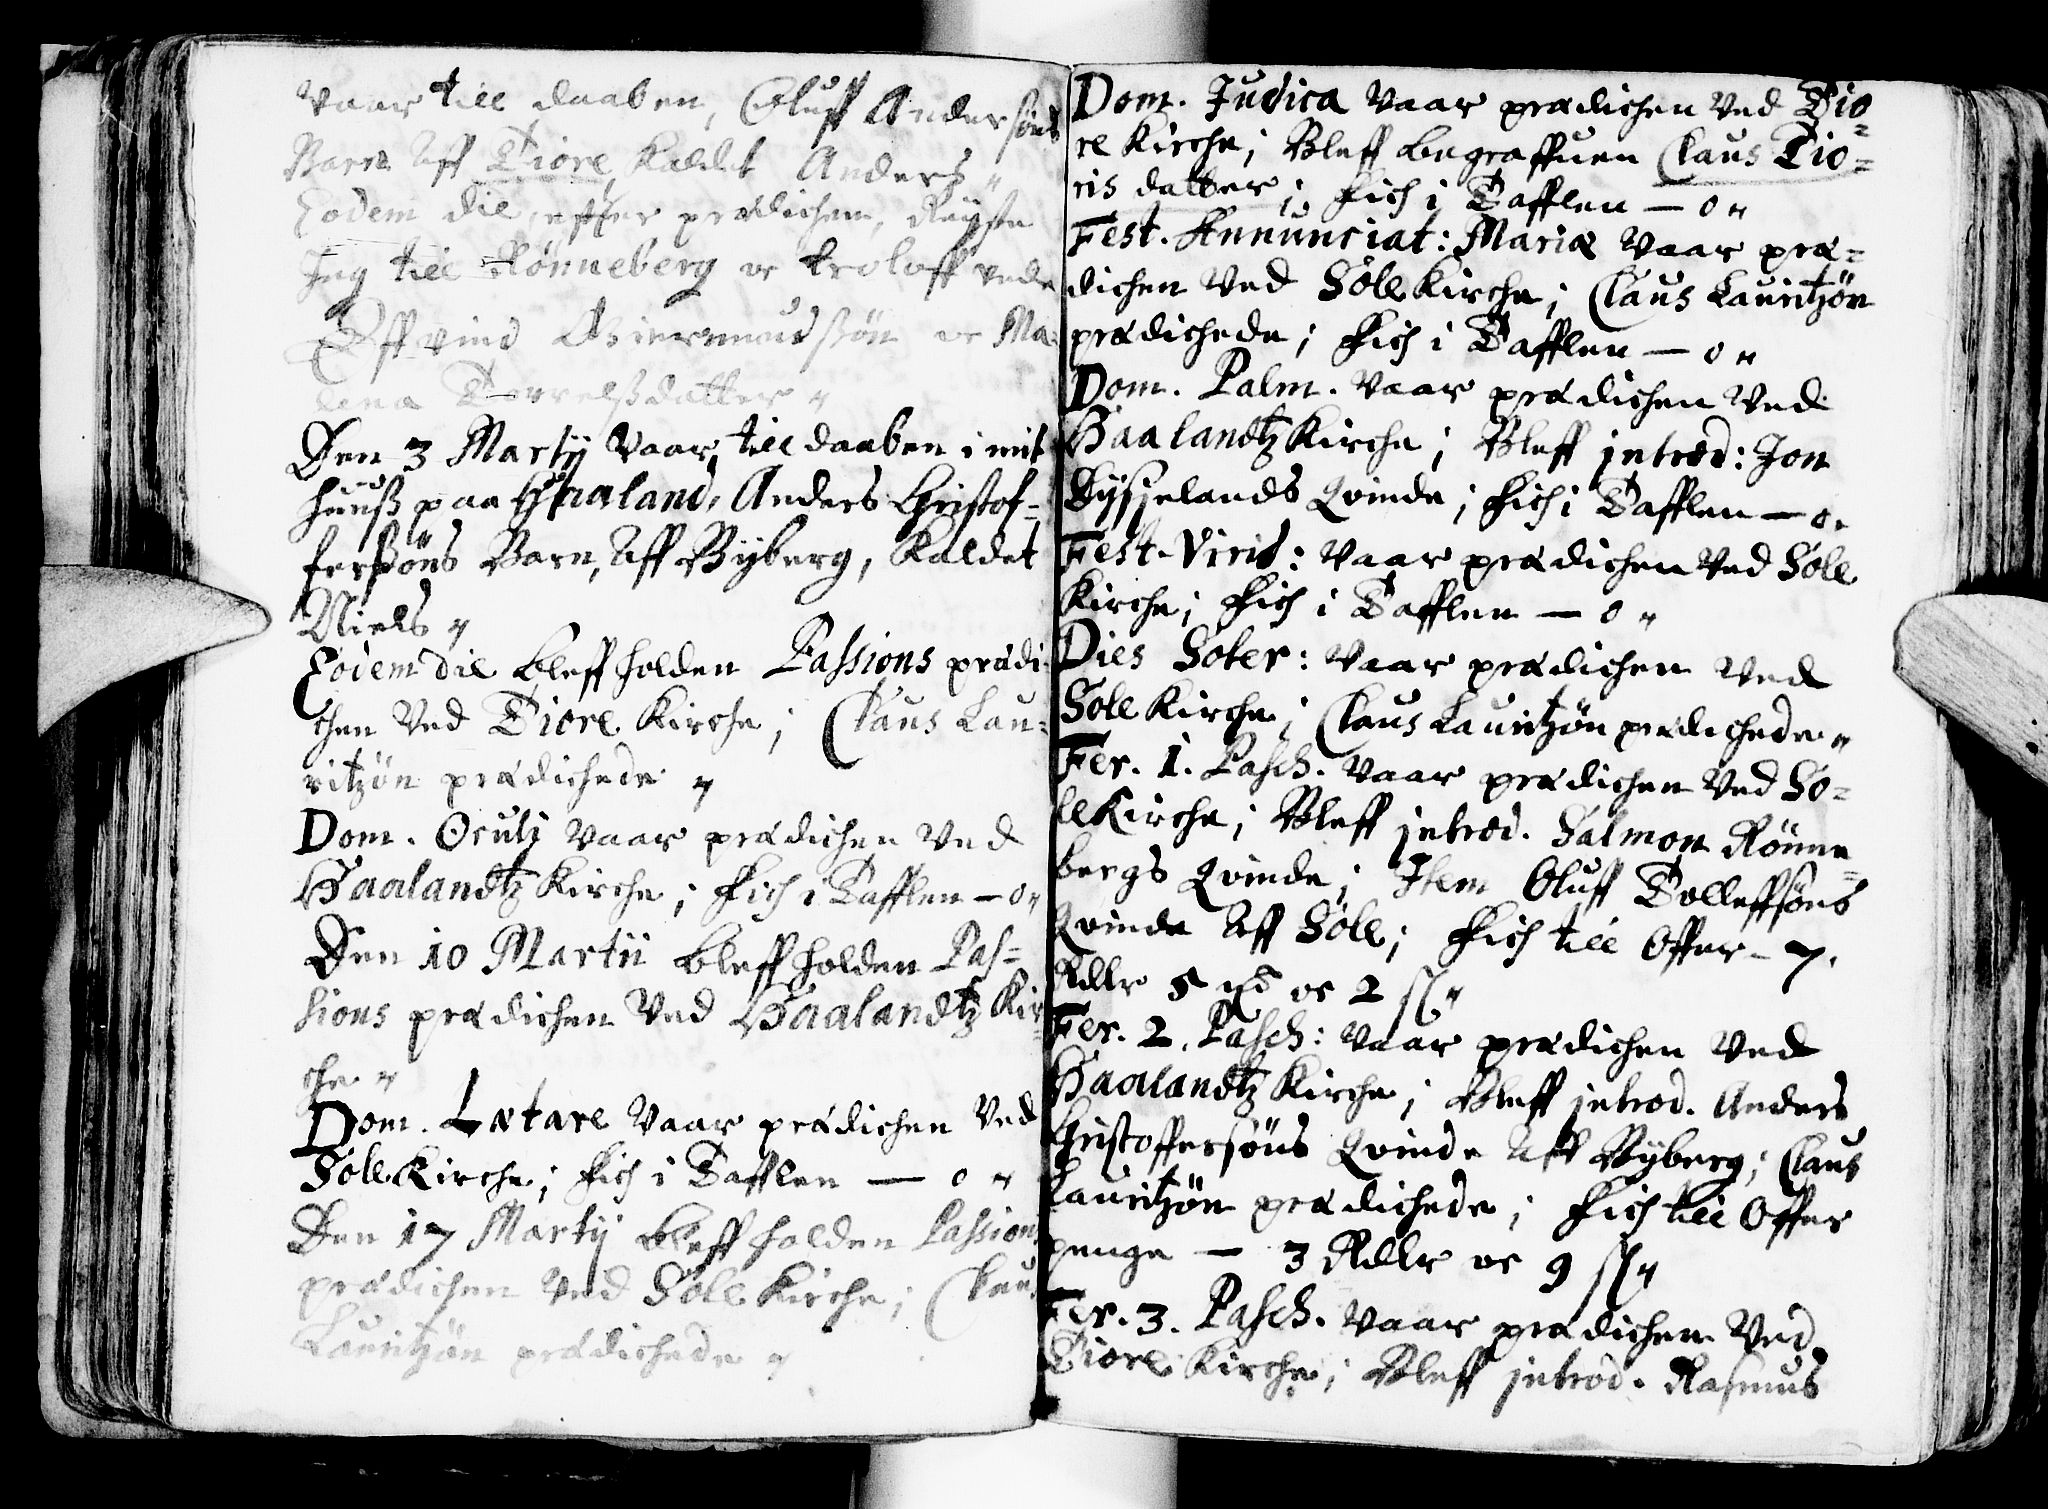 Vaar till daaben, Oluff Andersøns
Barn Aff Tiore, Kaldet Anders
Eodem die, effter prædichen, Reyste
Jeg till Rönneberg oc troloffvede
Øffvind Giermundssøn oc Ma-
lena Torrelßdatter
Den 3 Martij Vaar till daaben i mit
huuß paa Haaland, Anders Christof-
ferßøns Barn, Aff Byberg, Kaldet
Niels
Eodem die bleff holden Passions prædi-
chen Ved Tiore Kirche; Claus Lau-
ritzøn prædichede
Dom. Oculi Vaar prædichen Ved
Haalandtz Kirche; Fich i Tafflen — 0
Den 10 Martii bleff holden Pas-
sions prædichen Ved Haalandtz Kir-
che
Dom. Lætare Vaar prædichen Ved
Sole Kirche; Fich i Tafflen — 0
Den 17 Martij bleff holden Passions
prædichen Ved Sole Kirche; Claus
Lauritzøn prædichede
Dom. Judica Vaar prædichen Ved Tio-
re Kirche; Bleff begraffuen Claus Tio-
ris datter; Fich i Tafflen — 0
Fest. Annunciat: Mariæ Vaar præ-
dichen Ved Sole Kirche; Claus Lauritzøn
prædichede; Fich i Tafflen — 0
Dom. Palm. Vaar prædichen Ved
Haalandtz Kirche; Bleff introd: Jon
Dysjelands Qvinde; Fich i Tafflen — 0
Fest. Virid: Vaar prædichen Ved Sole
Kirche; Fich i Tafflen — 0
Dies Soter: Vaar prædichen Ved
Sole Kirche; Claus Lauritzøn prædichede
Fer. 1. Pasch. Vaar prædichen Ved So-
le Kirche; Bleff introd. Salmon Rönne-
bergs Qvinde; Item Oluff Tolleffsøns
Qvinde Aff Sole; Fich till Offer — 7.
Rdlr 5 oc 2 sl
Fer. 2. Pasch: Vaar prædichen Ved
Haalandtz Kirche; Bleff introd. Anders
Christoffersøns Qvinde Aff Byberg; Claus
Lauritzøn prædichede; Fich till Offer
penge — 3 Rdlr oc 9 sl
Fer. 3. Pasch. Vaar prædichen Ved
Tiore Kirche; Bleff introd. Rasmus